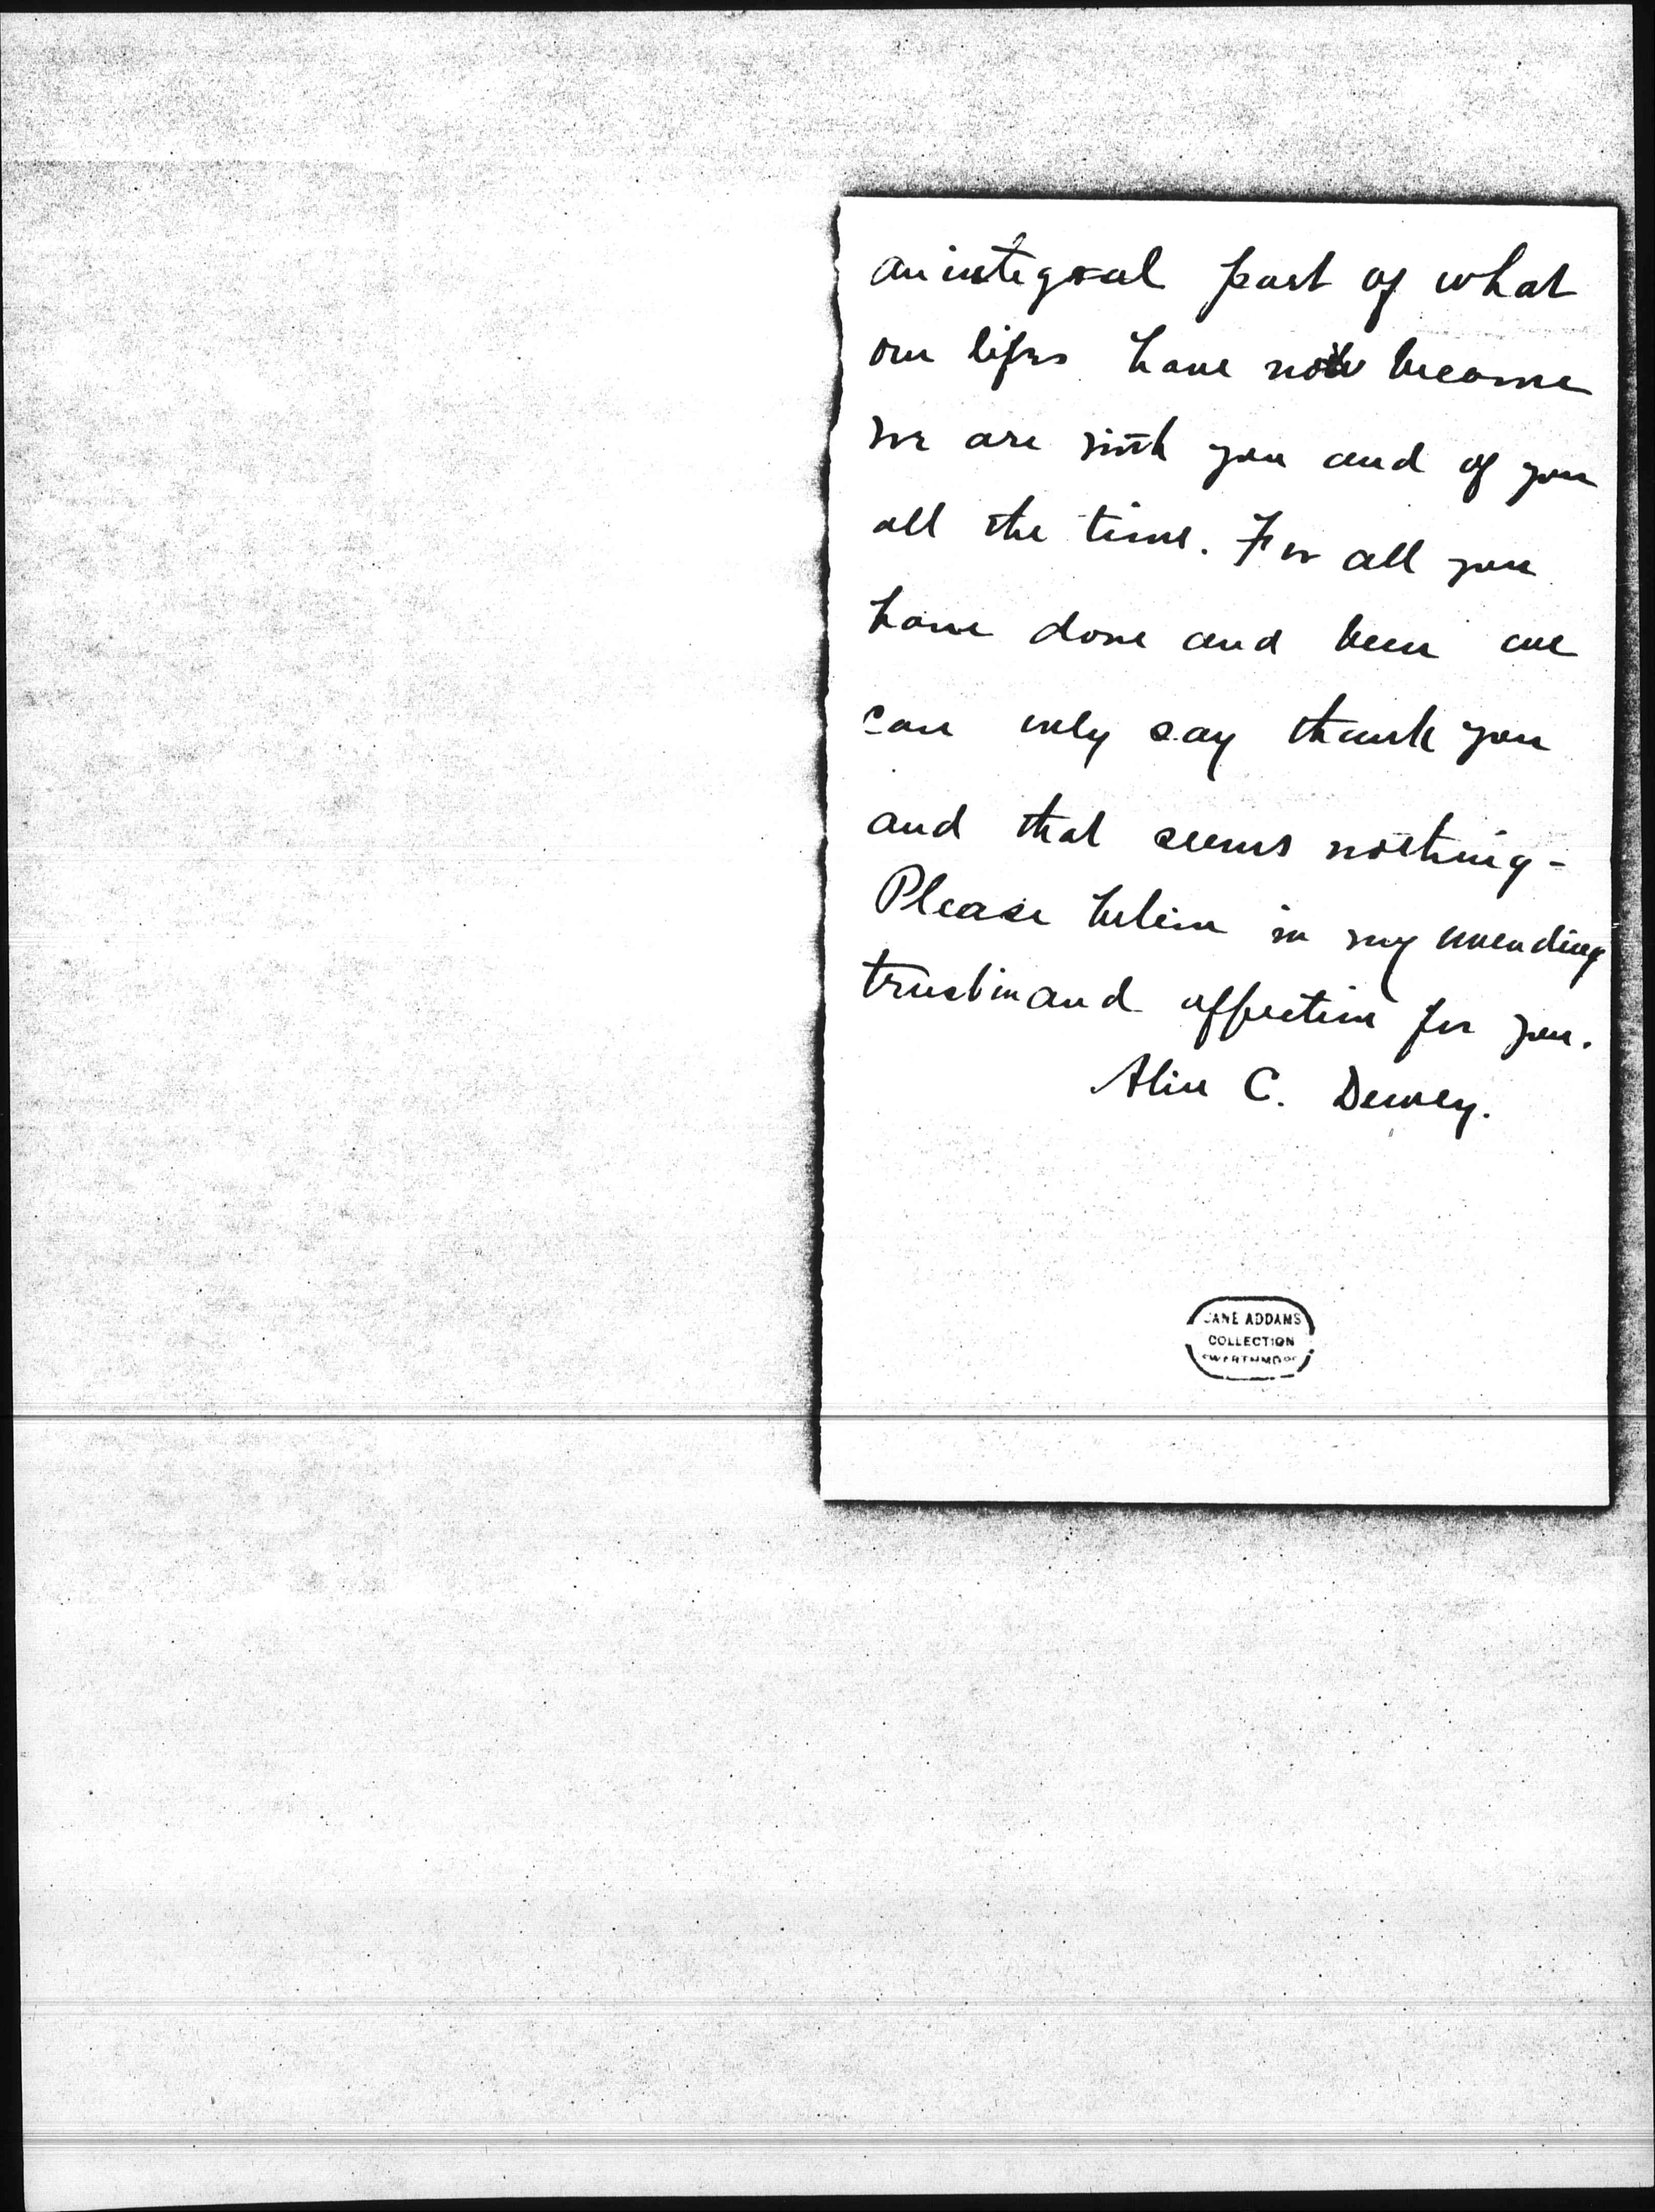 an integral part of what
our lifes have now become
we are with you and of you
all the time. For all you
have done and been we
can only say thank you
and that seems nothing -
Please believe in my unending
trust in and affection for you.
Alice C. Dewey.
JANE ADDAMS
COLLECTION
SWARTHMORE